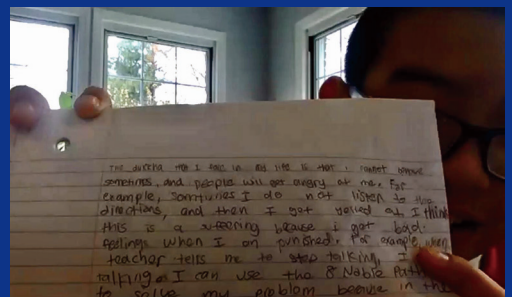 The durcha that I face in my life is that i cannot behave
sometimes, and people will get angry at me. For
example, sometimes I do not listen to the
directions, and then I get yelled at. I think
this is a suffering because i get bad
feelings when I am punished. For example, when
teacher tells me to stop talking, I
talking. I can use the 8 Noble Path
to solve my problem because in this